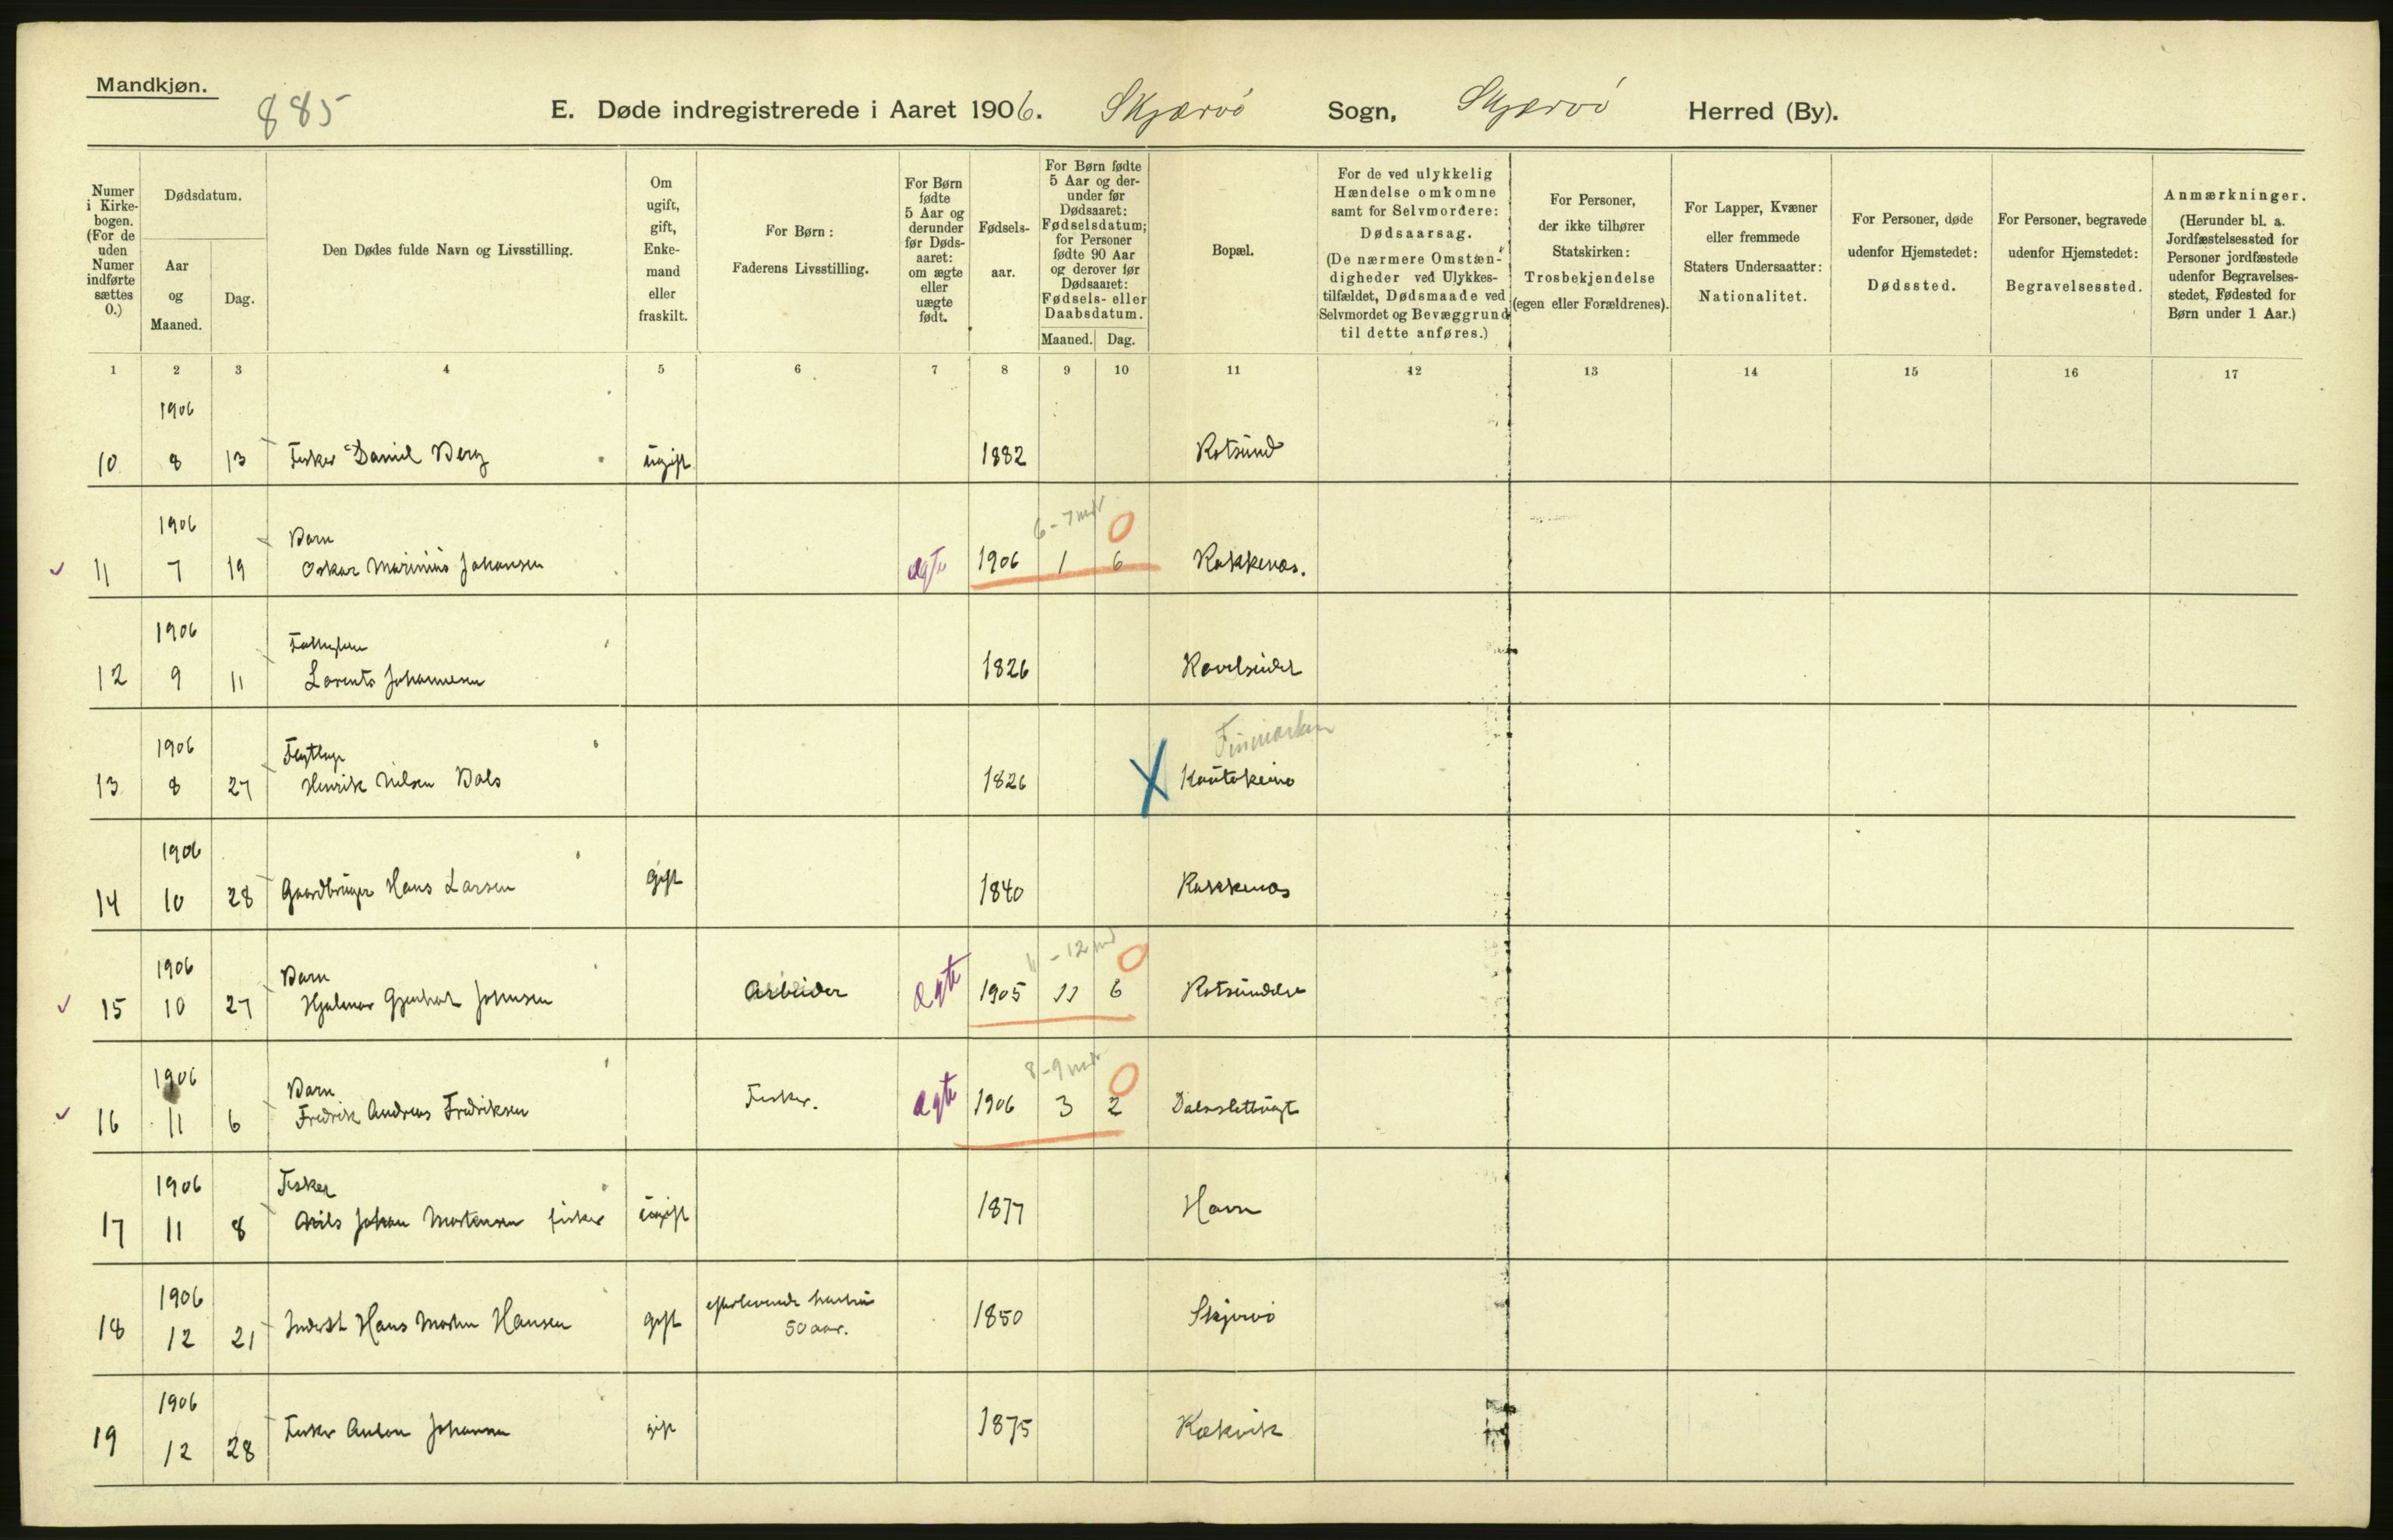 Mandkjøn.
885
E. Døde indregistrerede i Aaret 1906. Skjærvö Sogn, Skjærvö Herred (By).
Numer i Kirkebogen. (For de uden Numer indførte sættes 0.)
Dødsdatum.
Aar og Maaned.
Dag.
Den Dødes fulde Navn og Livsstilling.
Om ugift, gift, Enkemand eller fraskilt.
For Børn: Faderens Livsstilling.
For Børn fødte 5 Aar og derunder før Dødsaaret: om ægte eller uægte født.
Fødselsaar.
For Børn fødte 5 Aar og derunder før Dødsaaret: Fødselsdatum; for Personer fødte 90 Aar og derover før Dødsaaret: Fødsels- eller Daabsdatum.
Maaned. Dag.
Bopæl.
For de ved ulykkelig Hændelse omkomne samt for Selvmordere: Dødsaarsag. (De nærmere Omstændigheder ved Ulykkestilfældet, Dødsmaade ved Selvmordet og Bevæggrund til dette anføres.)
For Personer, der ikke tilhører Statskirken: Trosbekjendelse (egen eller Forældrenes).
For Lapper, Kvæner eller fremmede Staters Undersaatter: Nationalitet.
For Personer, døde udenfor Hjemstedet: Dødssted.
For Personer, begravede udenfor Hjemstedet: Begravelsessted.
Anmærkninger. (Herunder bl. a. Jordfæstelsessted for Personer jordfæstede udenfor Begravelsesstedet, Fødested for Børn under 1 Aar.)
1 2 3 4 5 6 7 8 9 10 11 12 13 14 15 16 17
1906
10 8 13 Fisker Daniel Berg ugift 1882 Rotsund
1906 Barn 6-7 mdr 0
11 7 19 Oskar Marinius Johansen ægte 1906 1 6 Kakkenæs.
1906
12 9 11 Lorents Johannesen 1826
1906 Finmarken
13 8 27 Henrik Nilsen Bals 1826 X Kautokeino
1906
14 10 28 Gaardbruger Hans Larsen gift 1840 Kakkenæs
1906 Barn 11-12 md 0
15 10 27 Hjalmar Johnsen Arbeider ægte 1905 11 6 Rotsundelv
1906 Barn 8-9 mdr 0
16 11 6 Fredrik Andreas Fredriksen Fisker. ægte 1906 3 2
1906 Fisker
17 11 8 Nils Johan Mortensen fisker ugift 1877 Havn
1906
18 12 21 Inderst Hans Morten Hansen gift efterlevende hustru 50 aar. 1850 Skjervö
1906
19 12 28 Fisker Anton Johansen gift 1875 Kækvik